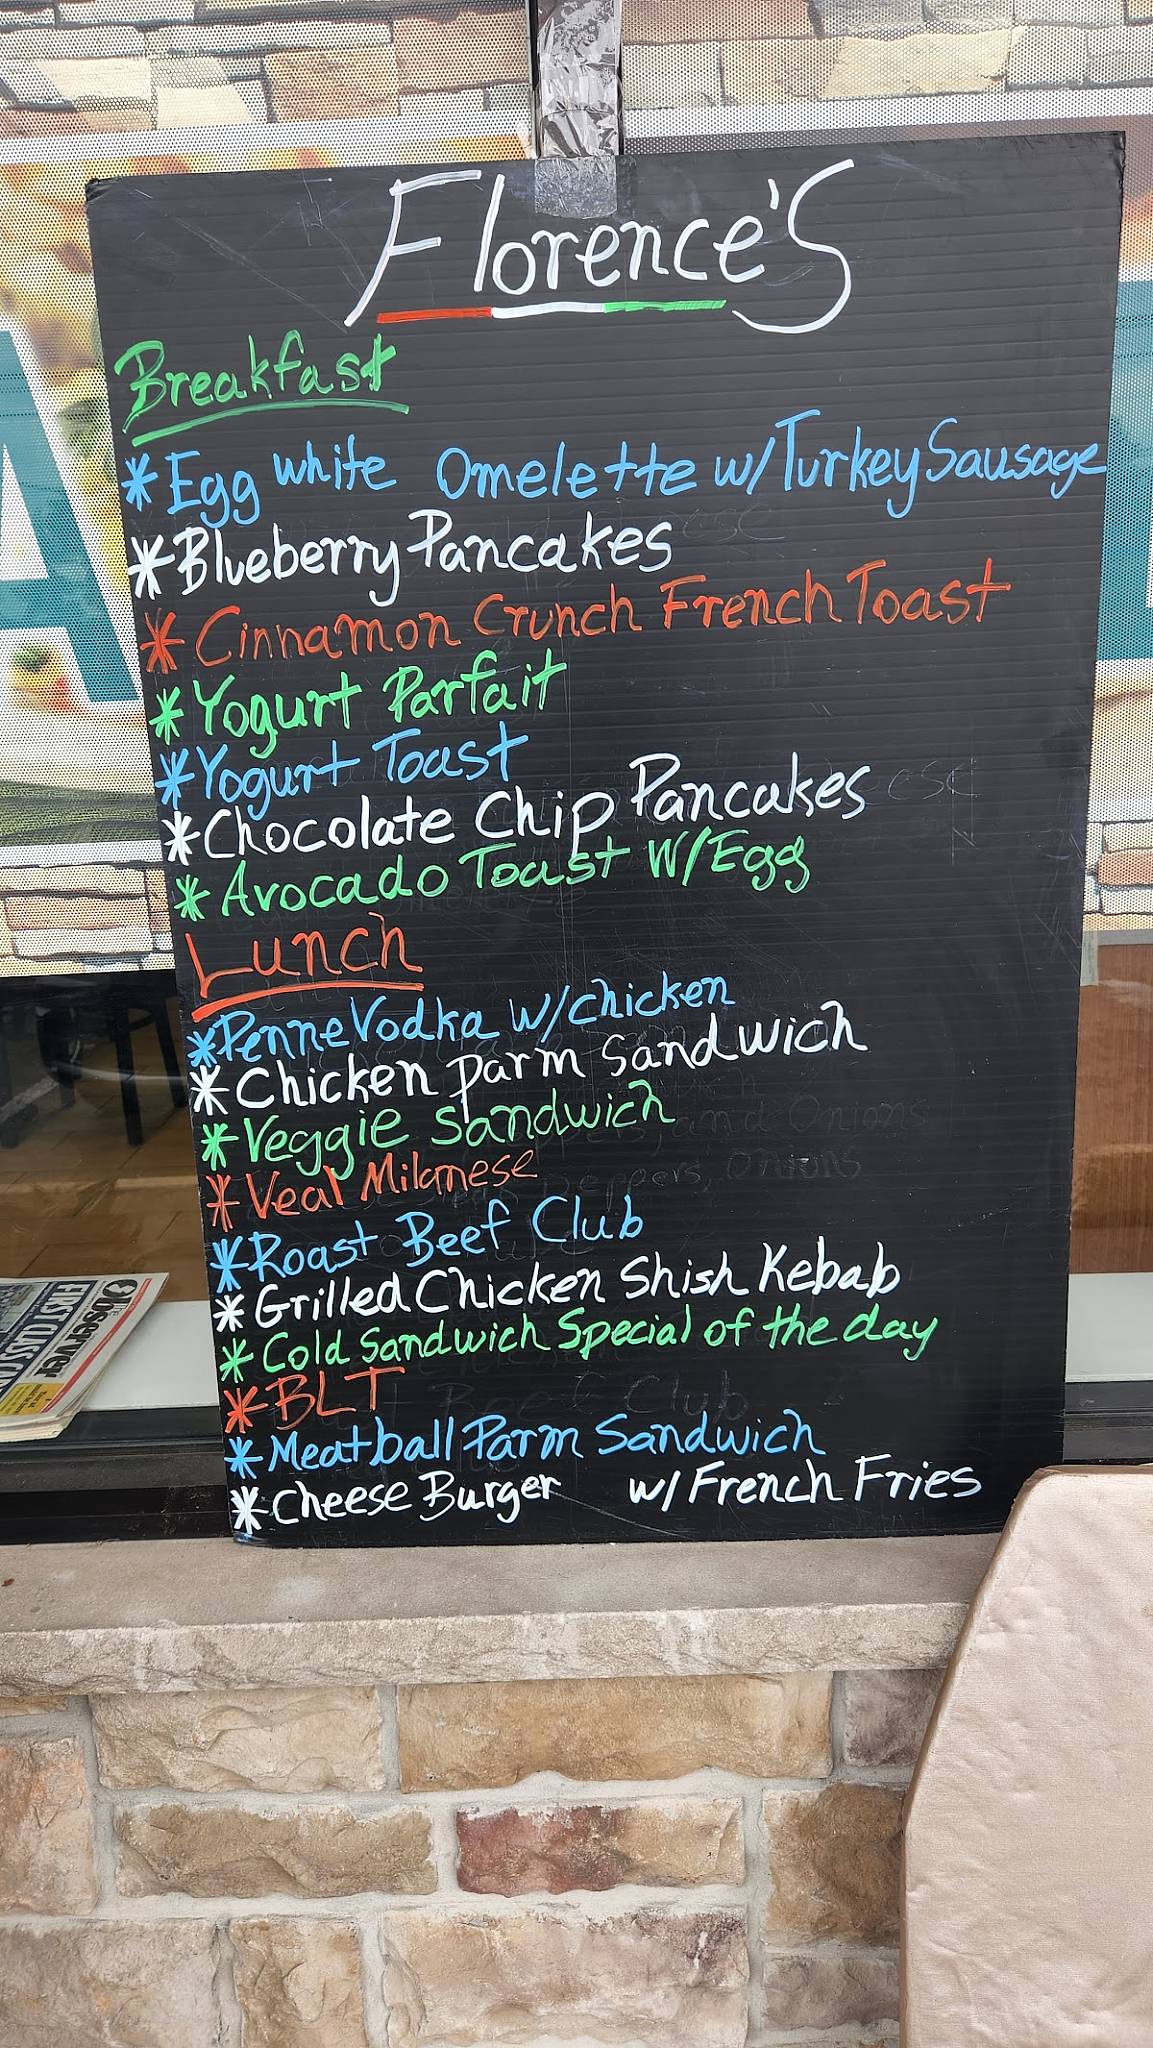 Florence's
Breakfast
* Egg white Omelette w/Turkey Sausage
* Blueberry Pancakes
* Cinnamon Crunch French Toast
* Yogurt Parfait
* Yogurt Toast
* Chocolate Chip Pancakes
* Avocado Toast W/Egg
Lunch
* Penne Vodka w/chicken
* Chicken parm sandwich
* Veggie sandwich
* Veal Milanese
* Roast Beef Club
* Grilled Chicken Shish Kebab
* Cold Sandwich Special of the day
* BLT
* Meatball Parm Sandwich
* Cheese Burger w/French Fries
Observer